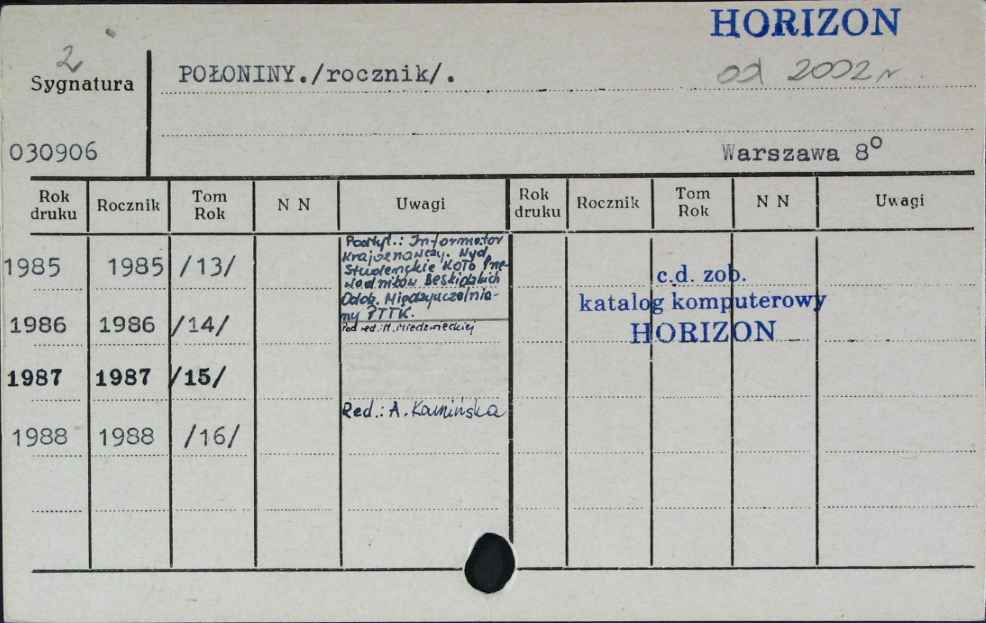 HORIZON
od 2002 r
2
Sygnatura
POŁONINY./rocznik/.
030906
Warszawa 8°
Rok druku Rocznik Tom Rok N N Uwagi Rok druku Rocznik Tom Rok N N Uwagi
1985 1985 /13/
Podtyt.: Informator
Krajoznawczy. Wyd.
Studenckie Koło Prze-
wodników Beskidzkich
Oddz. Międzyuczelnia-
ny PTTK.
1986 1986 /14/
Pod red.:
1987 1987 /15/
Red.: A. Kamińska
1988 1988 /16/
c.d. zob.
katalog komputerowy
HORIZON